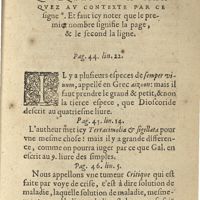 QVEZ AV CONTEXTE PAR CE
signe ". Et faut icy noter que le pre-
mier nombre signifie la page,
& le second la ligne.
Pag. 44. lin. 22.
IL y a plusieurs especes de semper vi-
uum, appellé en Grec aizoon: mais il
faut prendre le grand & petit, & non
la tierce espece, que Dioscoride
descrit au quatriesme liure.
Pag. 45. lin. 14.
L'autheur met icy Terracimelia & sigillata pour
vne mesme chose: mais il y a grande differen-
ce, comme on pourra iuger par ce que Gal. en
escrit au 9. liure des simples.
Pag. 46. lin. 5.
Nous appellons vne tumeur Critique qui est
faite par voye de crise, c'est à dire solution de
maladie, laquelle solution de maladie, mesme-